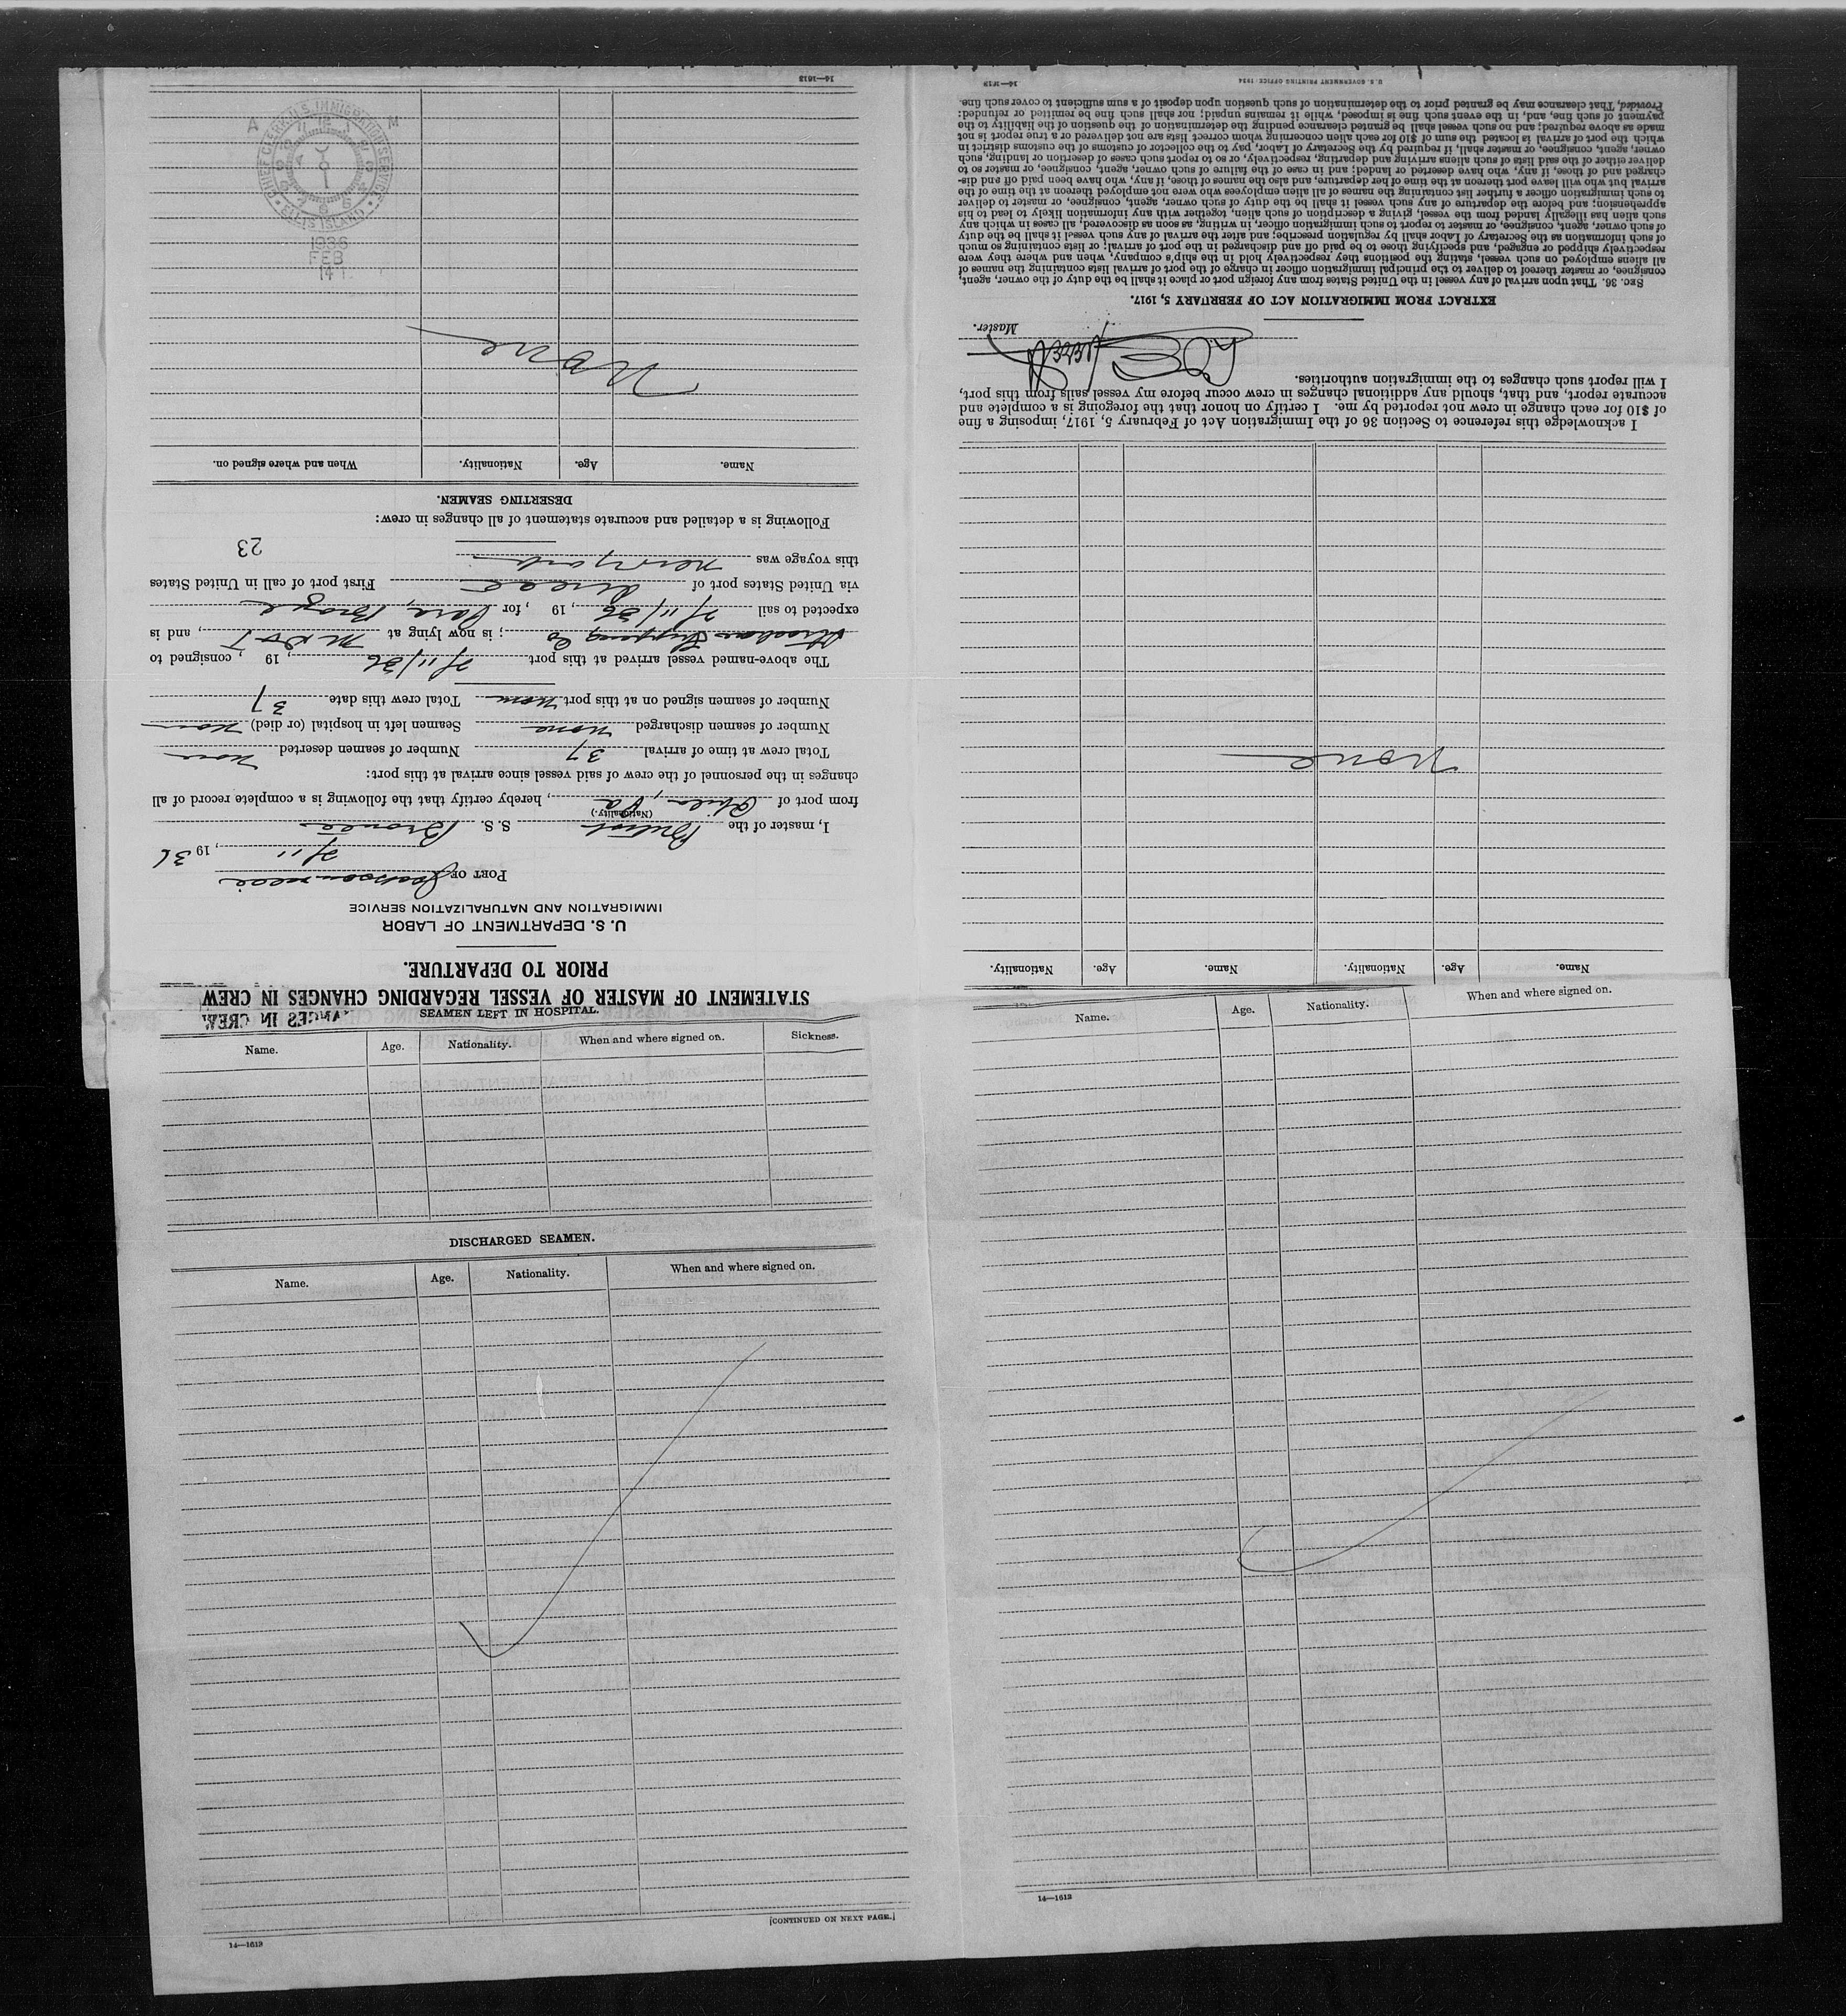 STATEMENT OF MASTER OF VESSEL REGARDING CHANGES IN CREW
PRIOR TO DEPARTURE.
U. S. DEPARTMENT OF LABOR
IMMIGRATION AND NATURALIZATION SERVICE
PORT OF Jacksonville
2/11, 1936
I, master of the British S. S.
(Nationality.)
from port of Phila, Pa, hereby certify that the following is a complete record of all
changes in the personnel of the crew of said vessel since arrival at this port:
Total crew at time of arrival 37 Number of seamen deserted None
Number of seamen discharged None Seamen left in hospital (or died) None
Number of seamen signed on at this port None Total crew this date 37
The above-named vessel arrived at this port 2/11/36, 19 , consigned to
Strachan Shipping Co; is now lying at M & M T, and is
expected to sail 2/11/36, 19 , for Para, Brazil
via United States port of direct First port of call in United States
this voyage was New York
23
Following is a detailed and accurate statement of all changes in crew:
DESERTING SEAMEN.
Name. Age. Nationality. When and where signed on.
None
CHIEF CLERK U.S. IMMIGRATION SERVICE
ELLIS ISLAND
A M
1936
FEB
14
14—1613
Name. Age. Nationality. Name. Age. Nationality.
None
I acknowledge this reference to Section 36 of the Immigration Act of February 5, 1917, imposing a fine
of $10 for each change in crew not reported by me. I certify on honor that the foregoing is a complete and
accurate report, and that, should any additional changes in crew occur before my vessel sails from this port,
I will report such changes to the immigration authorities.
Master.
EXTRACT FROM IMMIGRATION ACT OF FEBRUARY 5, 1917.
SEC. 36. That upon arrival of any vessel in the United States from any foreign port or place it shall be the duty of the owner, agent,
consignee, or master thereof to deliver to the principal immigration officer in charge of the port of arrival lists containing the names of
all aliens employed on such vessel, stating the positions they respectively hold in the ship's company, when and where they were
respectively shipped or engaged, and specifying those to be paid off and discharged in the port of arrival; or lists containing so much
of such information as the Secretary of Labor shall by regulation prescribe; and after the arrival of any such vessel it shall be the duty
of such owner, agent, consignee, or master to report to such immigration officer, in writing, as soon as discovered, all cases in which any
such alien has illegally landed from the vessel, giving a description of such alien, together with any information likely to lead to his
apprehension; and before the departure of any such vessel it shall be the duty of such owner, agent, consignee, or master to deliver
to such immigration officer a further list containing the names of all alien employees who were not employed thereon at the time of the
arrival but who will leave port thereon at the time of her departure, and also the names of those, if any, who have been paid off and dis-
charged and of those, if any, who have deserted or landed; and in case of the failure of such owner, agent, consignee, or master so to
deliver either of the said lists of such aliens arriving and departing, respectively, or so to report such cases of desertion or landing, such
owner, agent, consignee, or master shall, if required by the Secretary of Labor, pay to the collector of customs of the customs district in
which the port of arrival is located the sum of $10 for each alien concerning whom correct lists are not delivered or a true report is not
made as above required; and no such vessel shall be granted clearance pending the determination of the question of the liability to the
payment of such fine, and, in the event such fine is imposed, while it remains unpaid; nor shall such fine be remitted or refunded:
Provided, That clearance may be granted prior to the determination of such question upon deposit of a sum sufficient to cover such fine.
U. S. GOVERNMENT PRINTING OFFICE: 1934
14—1613
ANGES IN CREW
SEAMEN LEFT IN HOSPITAL.
Name. Age. Nationality. When and where signed on. Sickness.
DISCHARGED SEAMEN.
Name. Age. Nationality. When and where signed on.
[CONTINUED ON NEXT PAGE.]
14—1613
Name. Age. Nationality. When and where signed on.
14—1613